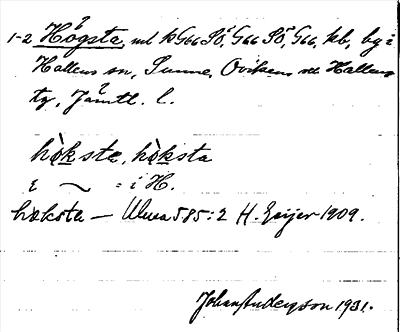 1-2 Högsta, ml KG66 Sö, G66 Sö, G66, kb, by i
Hallens sn, Sunne, Ovikens o. Hallens
tg, Jämtl. l.
hòkste, hòksta
i ~ = i H.
høksta — Ulma 585:2 H. Geijer 1909.
Johan Anderson 1931.